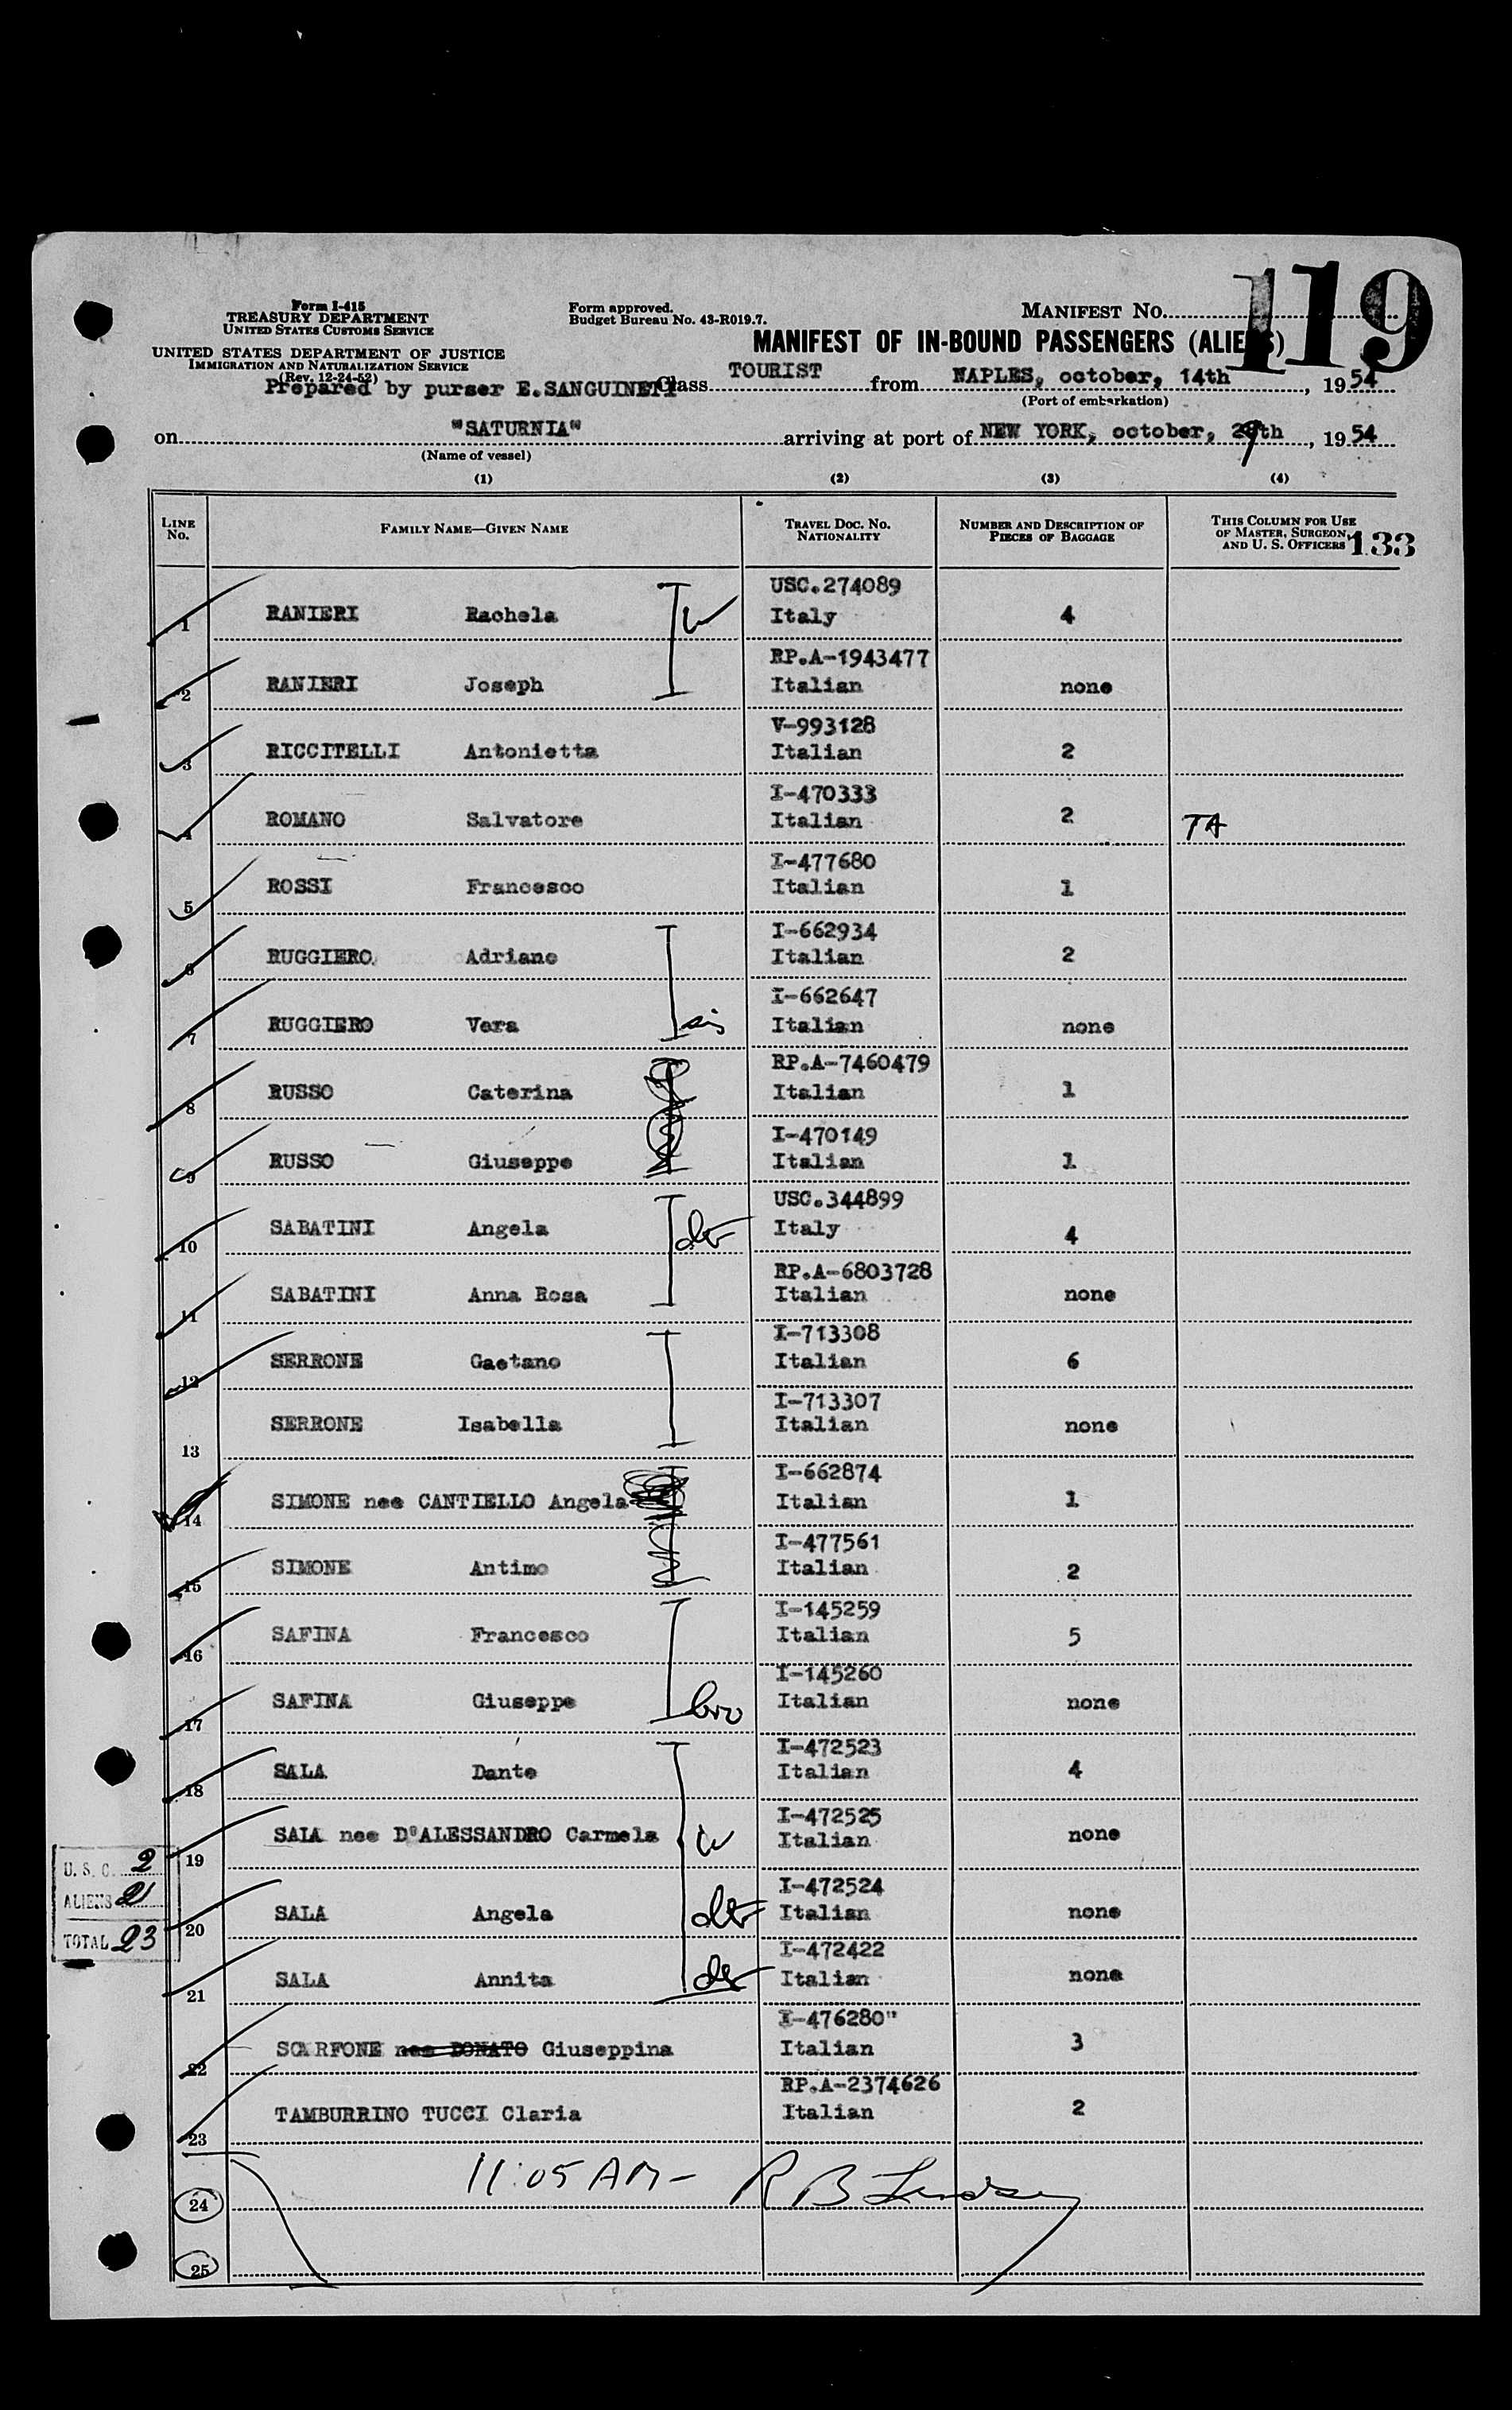 119
Form I-415
TREASURY DEPARTMENT
UNITED STATES CUSTOMS SERVICE
Form approved.
Budget Bureau No. 43-R019.7.
MANIFEST No.
UNITED STATES DEPARTMENT OF JUSTICE
IMMIGRATION AND NATURALIZATION SERVICE
(Rev. 12-24-52)
MANIFEST OF IN-BOUND PASSENGERS (ALIENS)
Prepared by purser E.SANGUINETI Class TOURIST from NAPLES, october, 14th, 1954
(Port of embarkation)
on "SATURNIA" arriving at port of NEW YORK, october, 29th, 1954
(Name of vessel)
(1) (2) (3) (4)
LINE No. FAMILY NAME—GIVEN NAME TRAVEL DOC. No. NATIONALITY NUMBER AND DESCRIPTION OF PIECES OF BAGGAGE THIS COLUMN FOR USE OF MASTER, SURGEON, AND U. S. OFFICERS 133
USC.274089
1 RANIERI Rachela w Italy 4
RP.A-1943477
2 RANIERI Joseph Italian none
V-993128
3 RICCITELLI Antonietta Italian 2
I-470333
4 ROMANO Salvatore Italian 2 TA
I-477680
5 ROSSI Francesco Italian 1
I-662934
6 RUGGIERO Adriano Italian 2
I-662647
7 RUGGIERO Vera sis Italian none
RP.A-7460479
8 RUSSO Caterina Italian 1
I-470149
9 RUSSO Giuseppe Italian 1
USC.344899
10 SABATINI Angela dtr Italy 4
RP.A-6803728
11 SABATINI Anna Rosa Italian none
I-713308
12 SERRONE Gaetano Italian 6
I-713307
13 SERRONE Isabella Italian none
I-662874
14 SIMONE nee CANTIELLO Angela Italian 1
I-477561
15 SIMONE Antimo Italian 2
I-145259
16 SAFINA Francesco Italian 5
I-145260
17 SAFINA Giuseppe bro Italian none
I-472523
18 SALA Dante Italian 4
I-472525
19 SALA nee D'ALESSANDRO Carmela w Italian none
I-472524
20 SALA Angela dtr Italian none
I-472422
21 SALA Annita dtr Italian none
I-476280"
22 SCARFONE nee DONATO Giuseppina Italian 3
RP.A-2374626
23 TAMBURRINO TUCCI Claria Italian 2
U. S. C. 2
ALIENS 21
TOTAL 23
11:05 AM - R B Lindsey
24
25